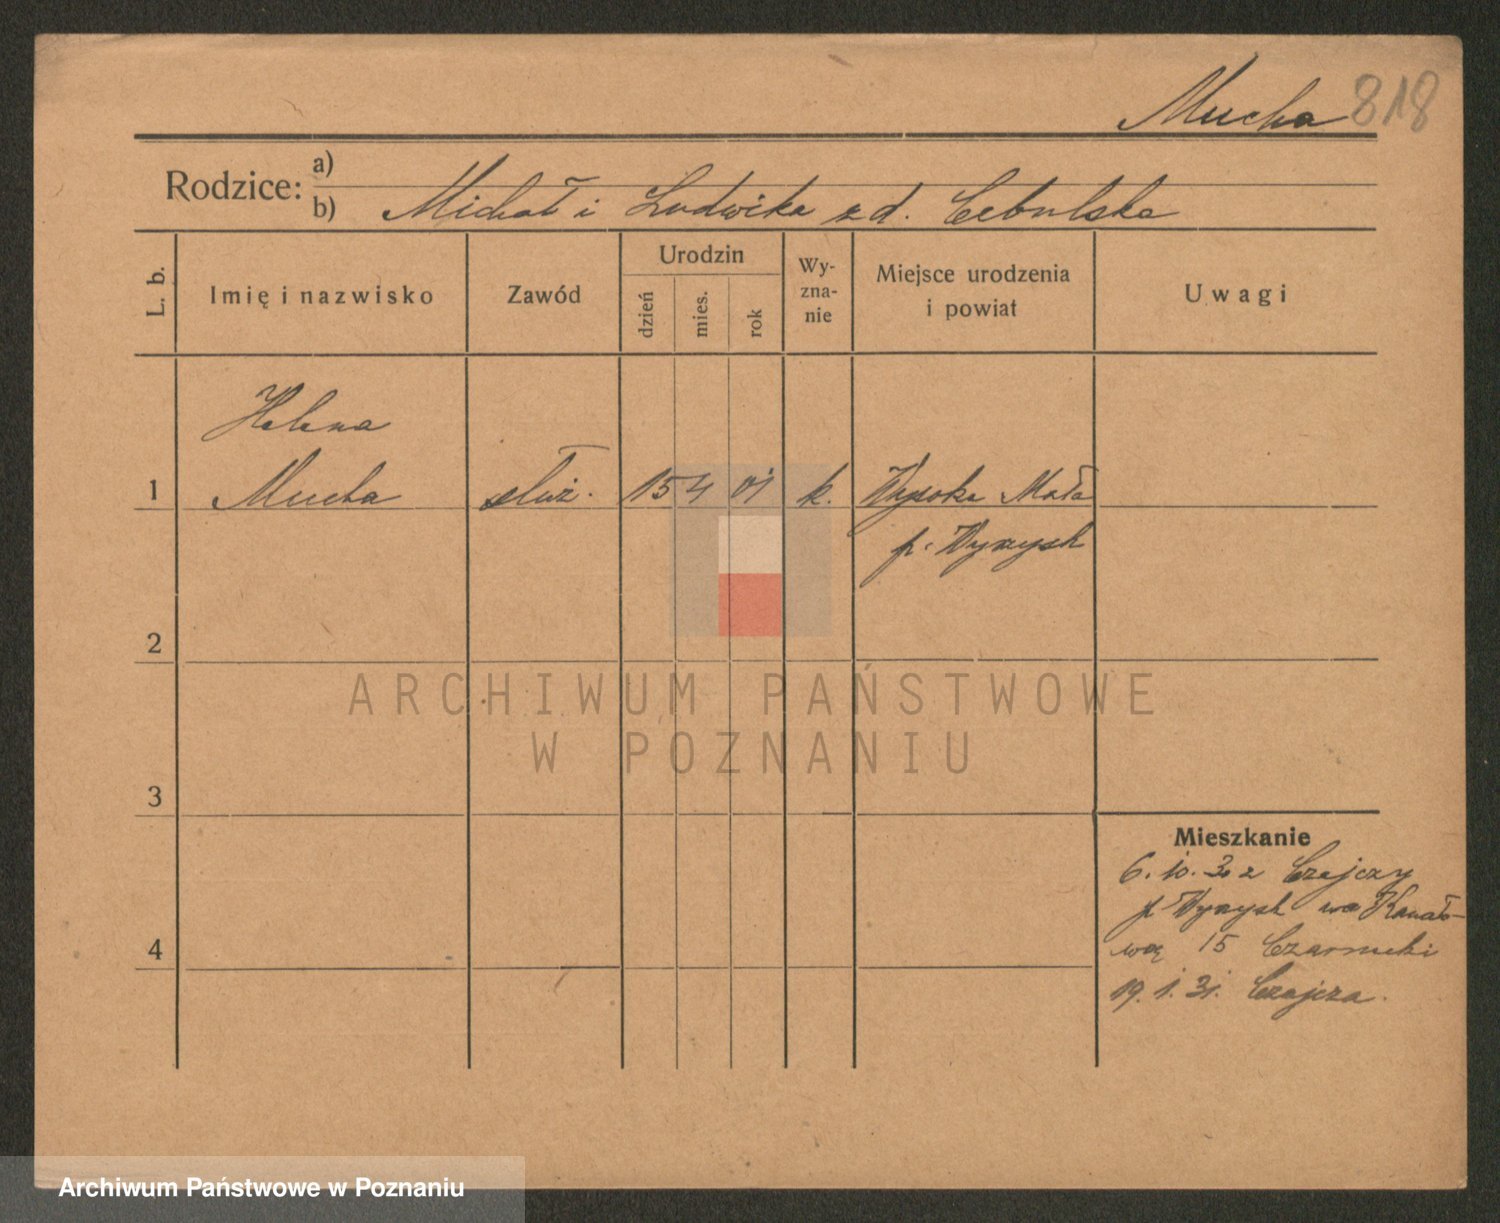 Mucha 818
Rodzice: a)
b) Michał i Ludwika z d. Cebulska
L. b.
Imię i nazwisko
Zawód
Urodzin
dzień
mies.
rok
Wy-
zna-
nie
Miejsce urodzenia
i powiat
Uwagi
Helena
1 Mucha służ. 15 4 01 k. Wysoka Mała
p. Wyrzysk
2
3
4
Mieszkanie
6. 10. 30 z Czajczy
p. Wyrzysk na Kanało-
wą 15 Czarnecki
19. 1. 31. Czajcza.
ARCHIWUM PAŃSTWOWE
W POZNANIU
Archiwum Państwowe w Poznaniu